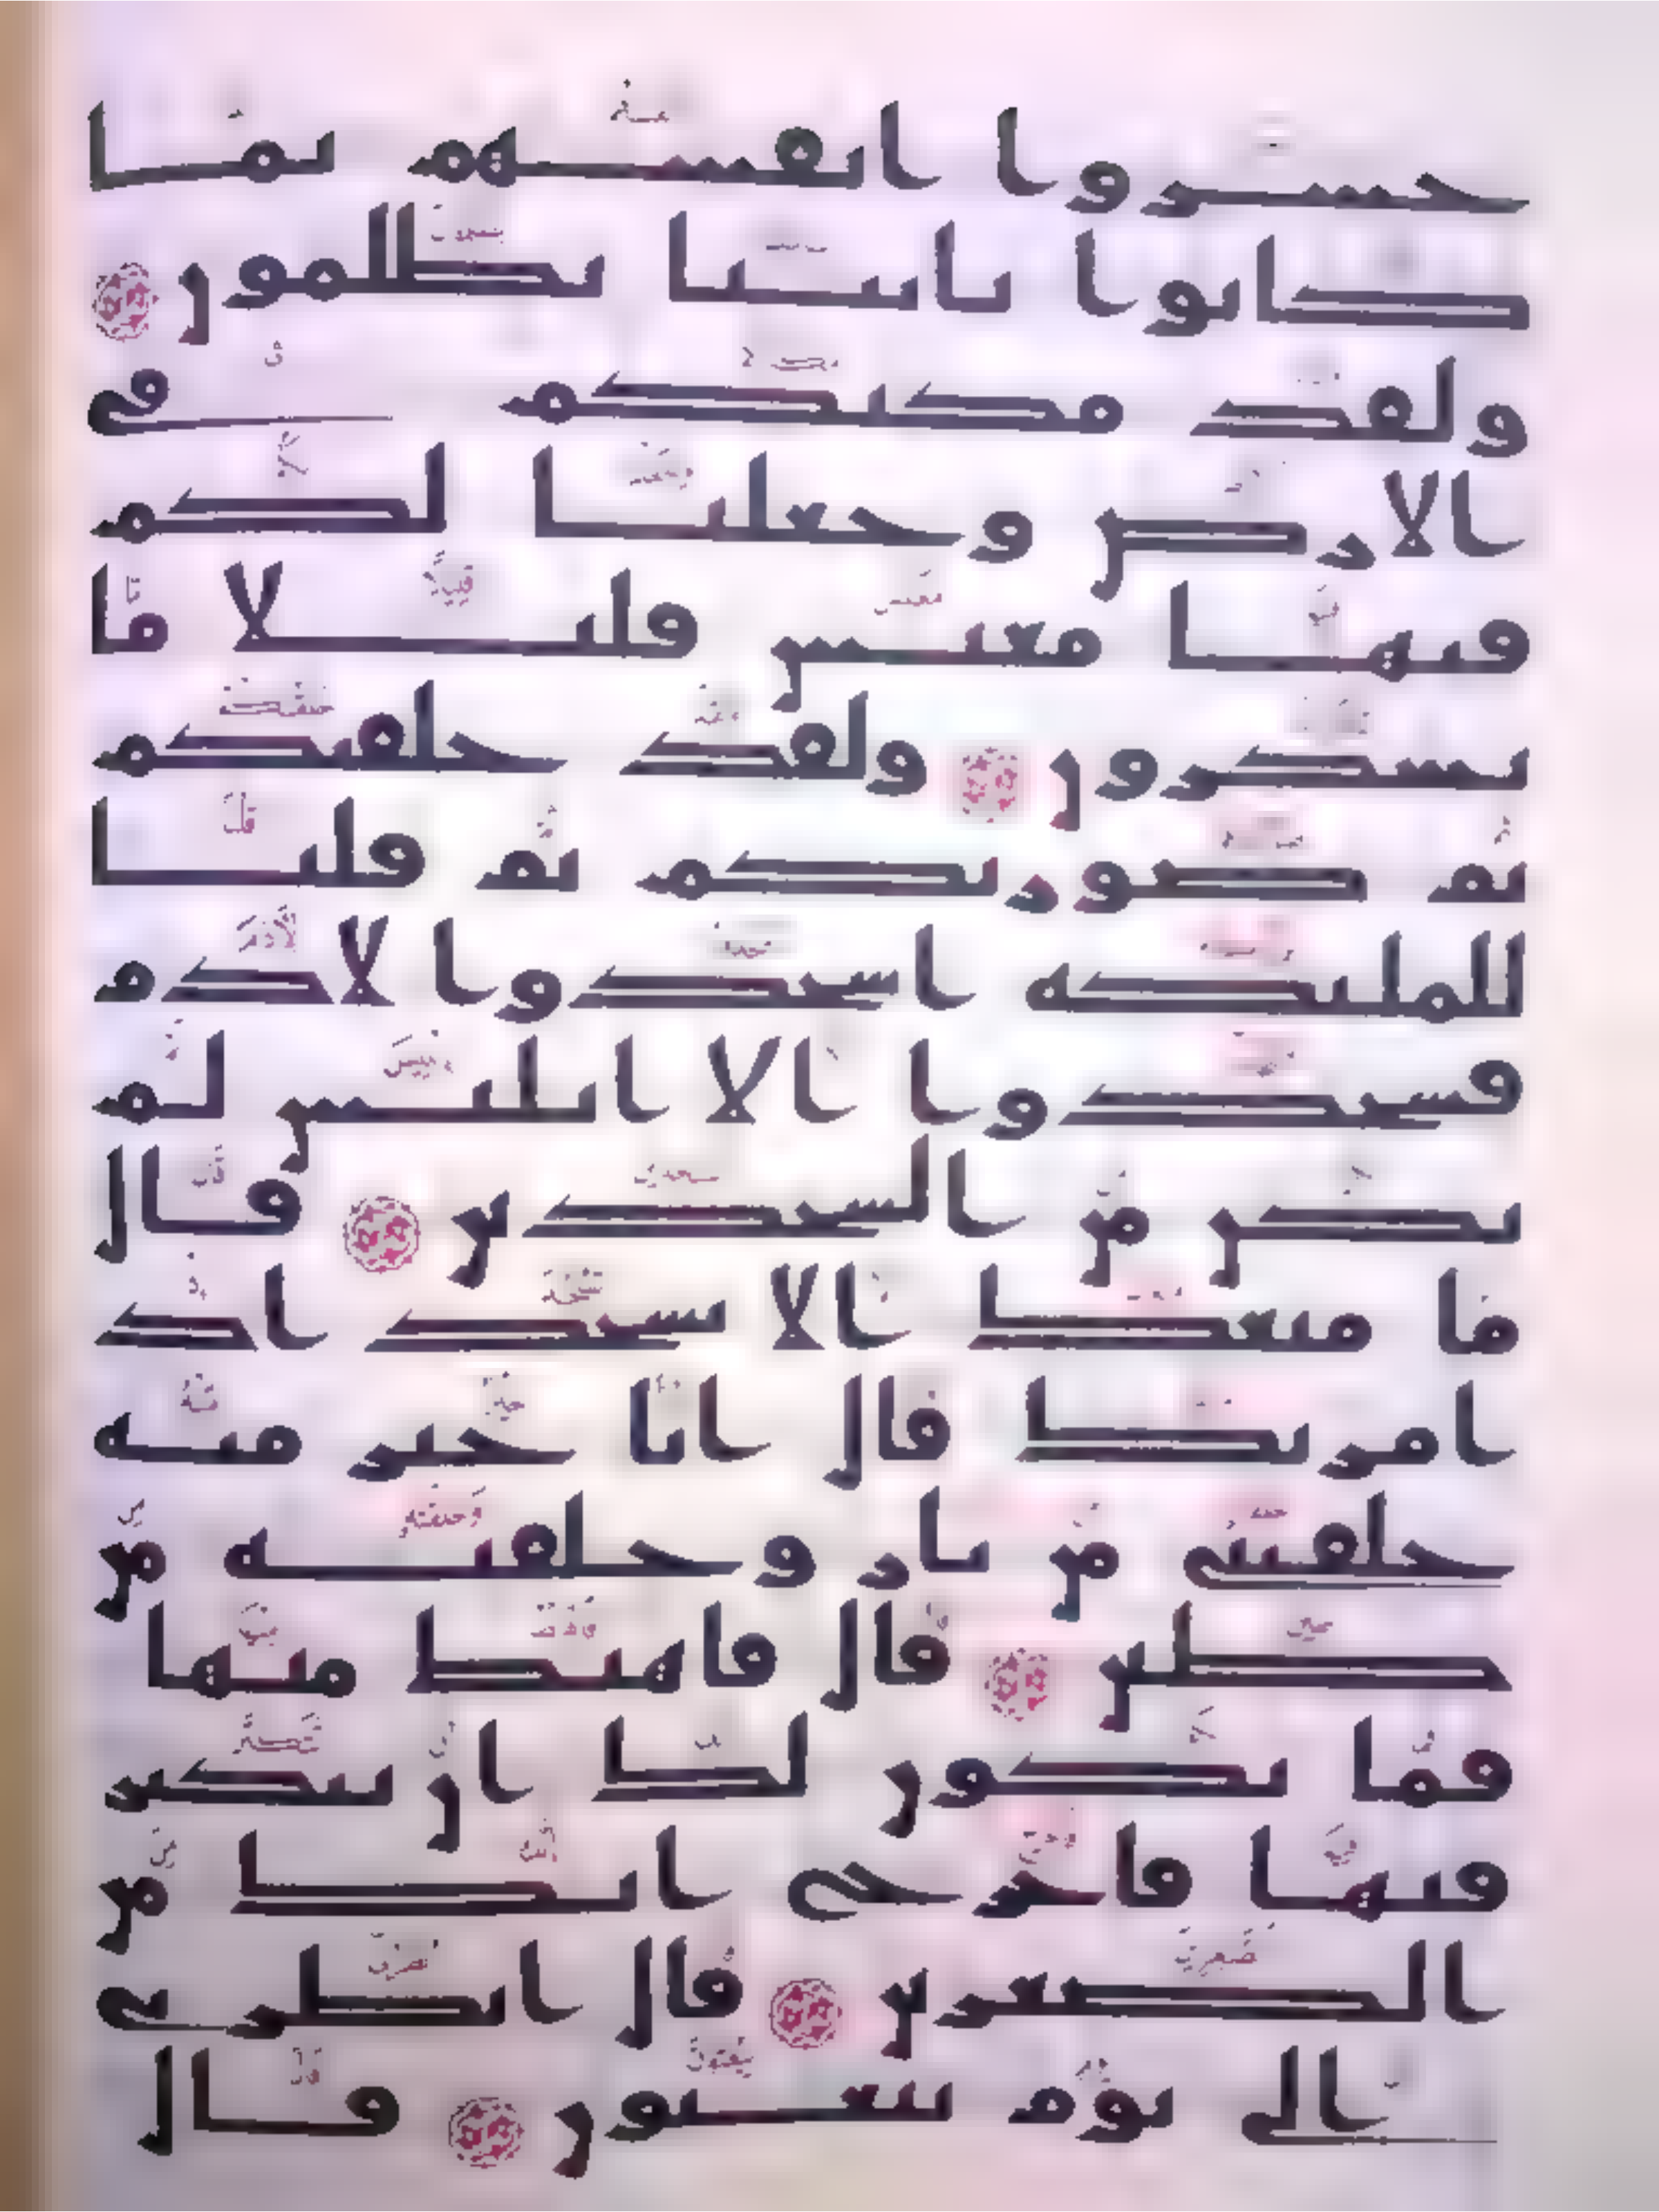 خسروا انفسهم بما
كانوا بايتنا يظلمون
ولقد مكنكم في
الارض وجعلنا لكم
فيها معيش قليلا ما
تشكرون ولقد خلقنكم
ثم صورنكم ثم قلنا
للملئكة اسجدوا لادم
فسجدوا الا ابليس لم
يكن من السجدين قال
ما منعك الا تسجد اذ
امرتك قال انا خير منه
خلقتني من نار وخلقته من
طين قال فاهبط منها
فما يكون لك ان تتكبر
فيها فاخرج انك من
الصغرين قال انظرني
الى يوم يبعثون قال